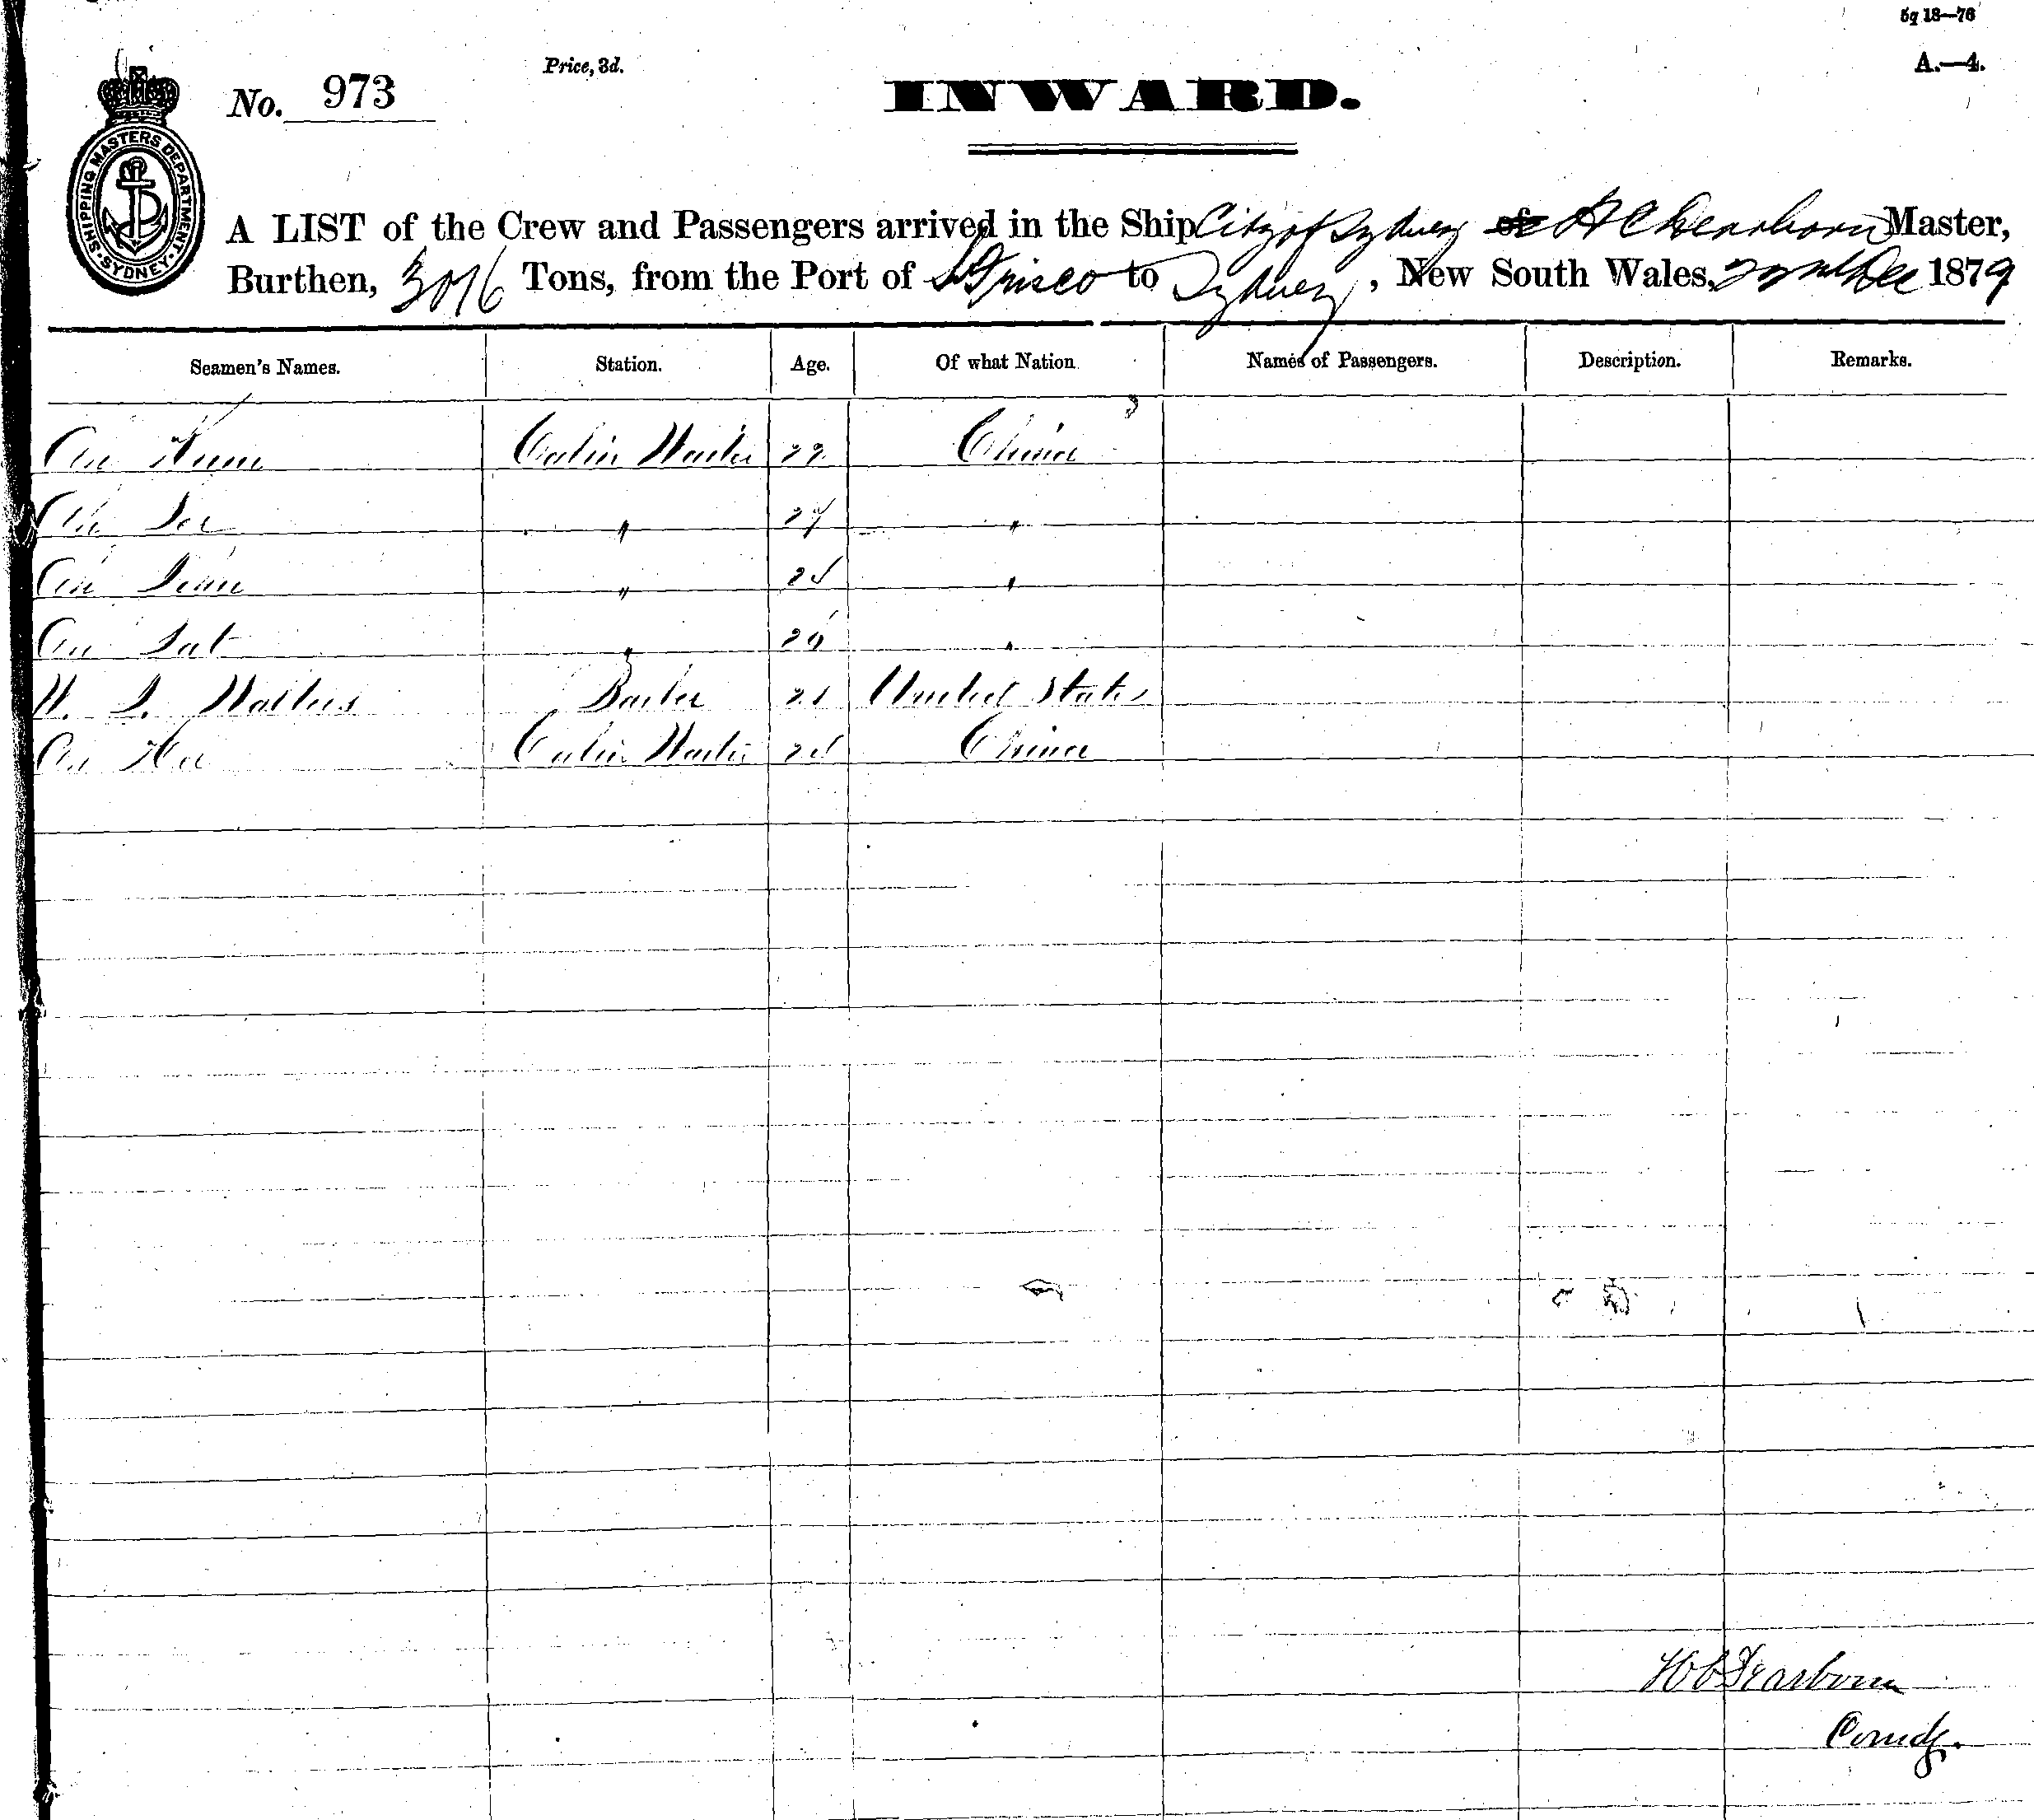 5q 18—76
Price, 3d.
A.—4.
No. 973
INWARD.
SHIPPING MASTERS DEPARTMENT SYDNEY
A LIST of the Crew and Passengers arrived in the Ship City of Sydney H C Dearborn Master,
Burthen, 3016 Tons, from the Port of S Frisco to Sydney, New South Wales, 22nd Dec 1879
Seamen's Names. Station. Age. Of what Nation. Names of Passengers. Description. Remarks.
Ah Kum Cabin Waiter 22 China
Ah " "
Ah " "
Ah Sat " "
W. Barber United States
Ah Cabin Waiter China
H C Dearborn
Comdg.